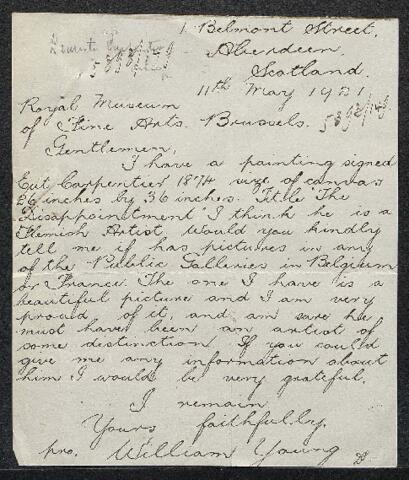 1 Belmont Street,
Aberdeen,
Scotland.
11th May 1921
Royal Museum
of Fine Arts. Brussels.
Gentlemen,
I have a painting signed
Eut Carpentier 1874 size of canvas
26 inches by 36 inches. Title "The
Disappointment" I think he is a
Flemish Artist. Would you kindly
tell me if has pictures in any
of the Public Galleries in Belgium
or France. The one I have is a
beautiful picture and I am very
proud of it, and am sure he
must have been an artist of
some distinction. If you could
give me any information about
him I would be very grateful.
I remain
Yours faithfully.
pro. William Young